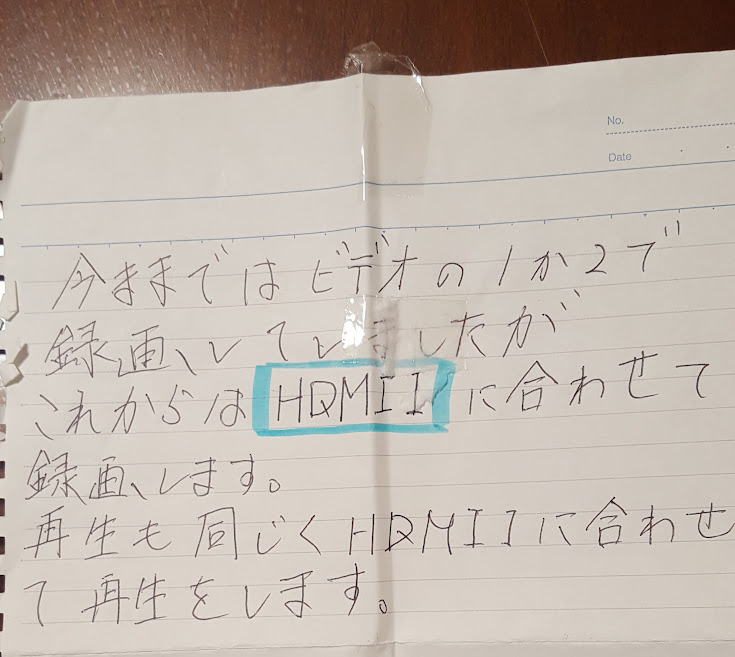 No.
Date
今ままではビデオの1か2で
録画していましたが
これからはHDMIIに合わせて
録画します。
再生も同じくHDMIIに合わせ
て再生をします。